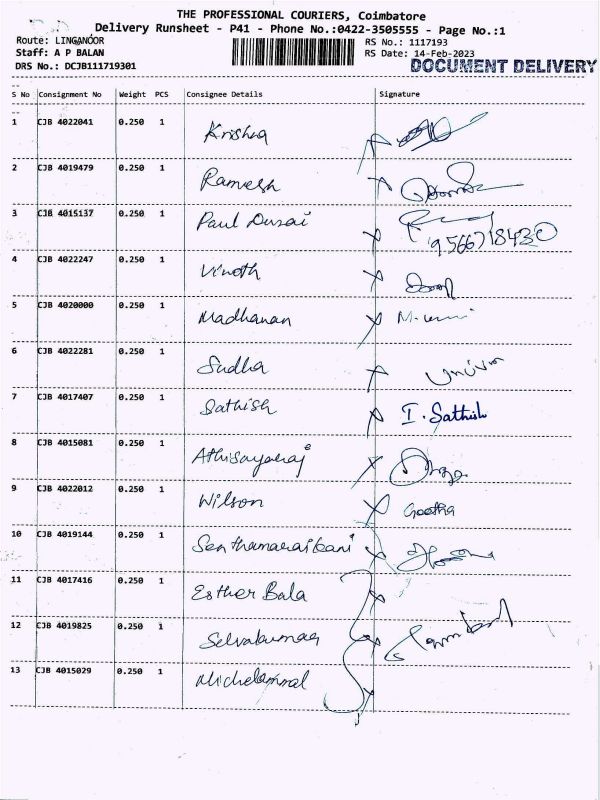 THE PROFESSIONAL COURIERS, Coimbatore
Delivery Runsheet - P41 - Phone No.:0422-3505555 - Page No.:1
Route: LINGANOOR
RS No.: 1117193
Staff: A P BALAN
RS Date: 14-Feb-2023
DRS No.: DCJB111719301
DOCUMENT DELIVERY
S No Consignment No Weight PCS Consignee Details Signature
1 CJB 4022041 0.250 1 Krishna
2 CJB 4019479 0.250 1 Ramesh
3 CJB 4015137 0.250 1 Paul Durai
9566718430
4 CJB 4022247 0.250 1 Vinoth
5 CJB 4020000 0.250 1 Madhanan
6 CJB 4022281 0.250 1 Sudha
7 CJB 4017407 0.250 1 Sathish I. Sathish
8 CJB 4015081 0.250 1 Athisayaraj
9 CJB 4022012 0.250 1 Wilson Geetha
10 CJB 4019144 0.250 1 Senthamaraikani
11 CJB 4017416 0.250 1 Esther Bala
12 CJB 4019825 0.250 1 Selvakumar
13 CJB 4015029 0.250 1 Michelammal